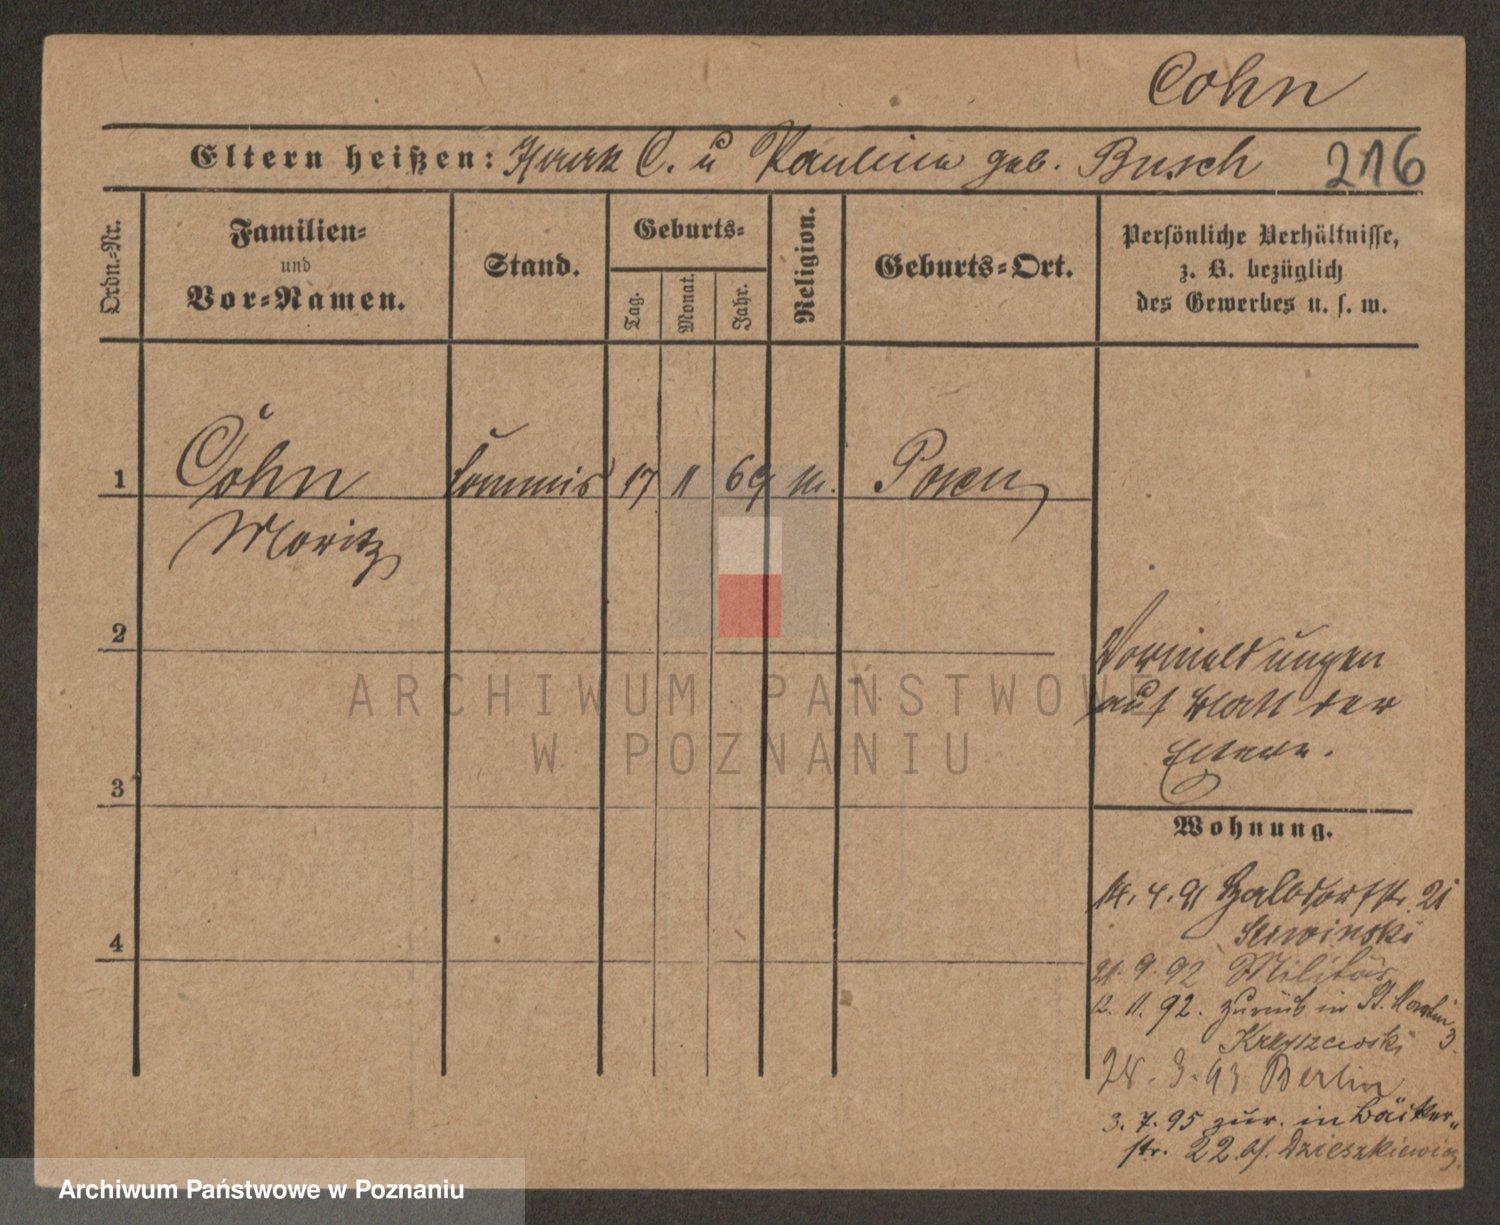 Cohn
Eltern heißen: C. u Paulina geb. Busch 216
Ordn.-Nr.
Familien-
und
Vor-Namen.
Stand.
Geburts-
Tag.
Monat.
Jahr.
Religion.
Geburts-Ort.
Persönliche Verhältnisse,
z. B. bezüglich
des Gewerbes u. s. w.
1 Cohn Commis 17 11 69 m. Posen
Moritz
2
3
4
Vormeldungen
auf Blatt der
Eltern.
Wohnung.
14. 4. 91 Halbdorfstr. 21
21. 9. 92 Militär
12. 11. 92. zurück in St. Martin
3.
28. 3. 93 Berlin
3. 7. 95 zur. in Bäcker-
str. 22. b/. Dzieszkiewicz
ARCHIWUM PAŃSTWOWE
W POZNANIU
Archiwum Państwowe w Poznaniu